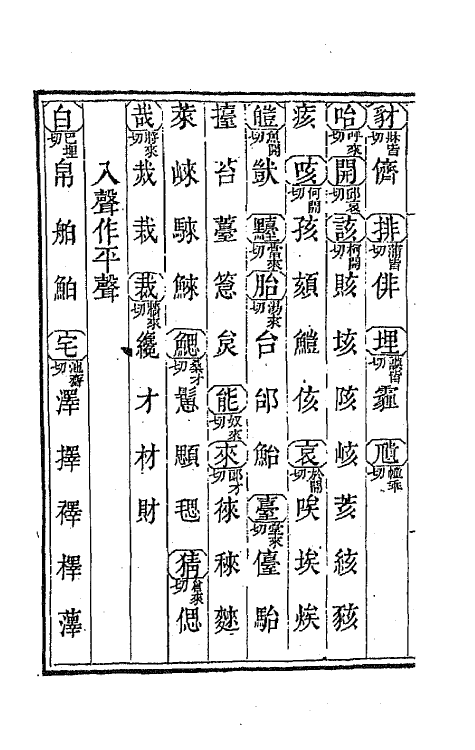 豺牀皆切 儕 排蒲皆切 俳 埋謨皆切 霾
咍呼來切 開邱哀切 該柯開切 賅 垓 陔 峐 荄 絯 豥
痎 咳何開切 孩 頦 侅 哀於開切 唉 埃
皚魚開切 獃 當來切 胎湯來切 台 邰 鮐 臺堂來切 儓 駘
擡 苔 薹 炱 能奴來切 來郎才切 徠 麳
萊 崍 騋 鯠 鰓桑才切 顋 毸 猜倉來切 偲
哉將來切 烖 栽 裁 纔 才 材 財
入聲作平聲
白巴埋切 帛 舶 鮊 宅池齋切 澤 擇 襗 檡